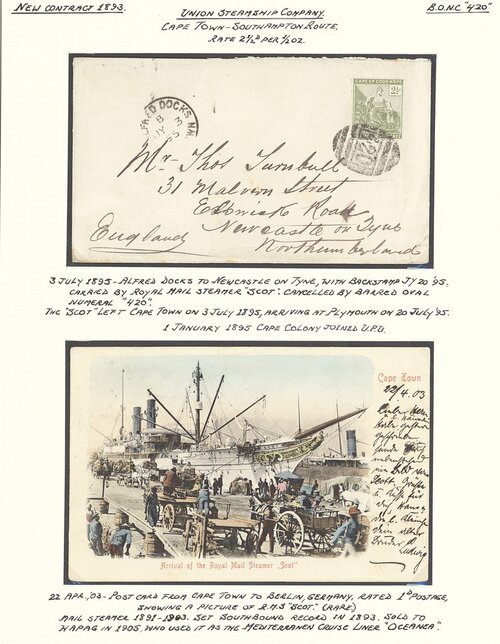 NEW CONTRACT 1893.
UNION STEAMSHIP COMPANY.
B.O.N.C "420"
CAPE TOWN - SOUTHAMPTON ROUTE.
RATE 2½d PER ½oz.
ALFRED DOCKS
B
JY 3
95
CAPE OF GOOD HOPE
2½
Mr Thos Turnbull
31 Malvern Street
Elswick Road
Newcastle on Tyne
Northumberland
England
3 JULY 1895 - ALFRED DOCKS TO NEWCASTLE ON TYNE, WITH BACKSTAMP JY 20 '95.
CARRIED BY ROYAL MAIL STEAMER "SCOT". CANCELLED BY BARRED OVAL
NUMERAL "420".
THE "SCOT" LEFT CAPE TOWN ON 3 JULY 1895, ARRIVING AT PLYMOUTH ON 20 JULY '95.
1 JANUARY 1895 CAPE COLONY JOINED U.P.U.
Cape Town
22/4.03
Arrival of the Royal Mail Steamer „Scot"
22 APR. '03 - POSTCARD FROM CAPE TOWN TO BERLIN, GERMANY, RATED 1d POSTAGE,
SHOWING A PICTURE OF R.M.S "SCOT". (RARE)
MAIL STEAMER 1891-1903. SET SOUTHBOUND RECORD IN 1893. SOLD TO
HAPAG IN 1905, WHO USED IT AS THE MEDITERRANEN CRUISE LINER "OCEANER".